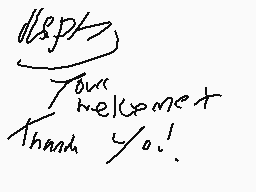 Your
welcome
Thank You!